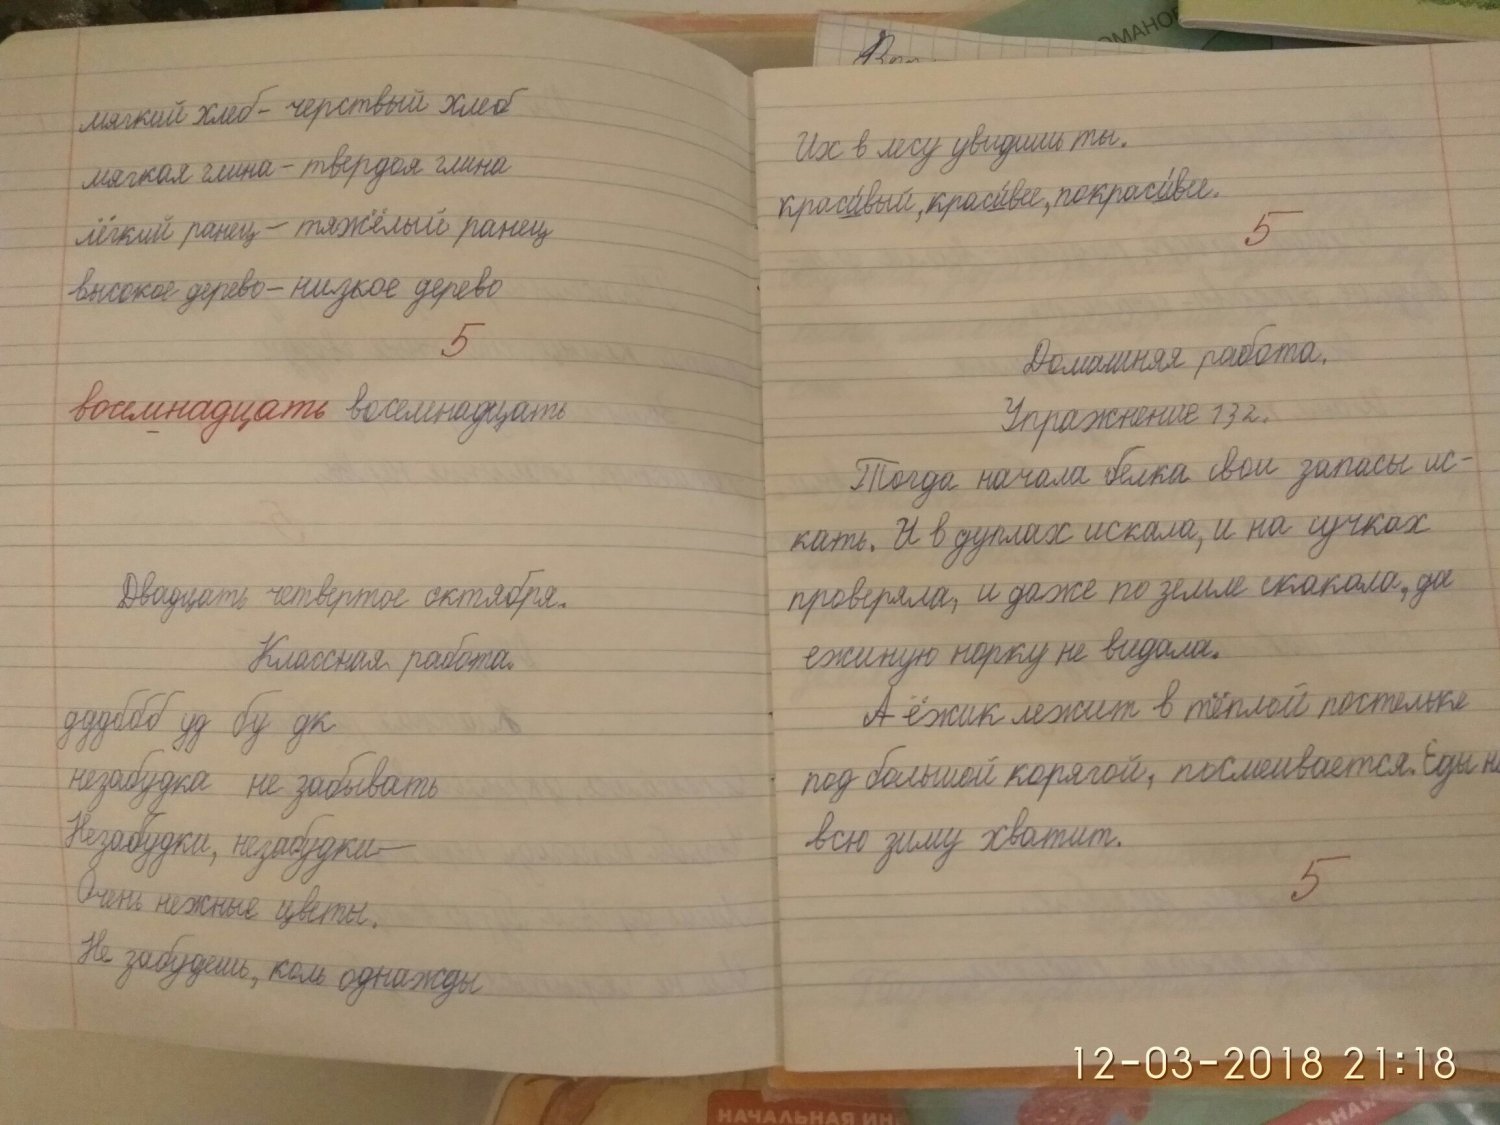 мягкий хлеб - черствый хлеб
мягкая глина - твердая глина
лёгкий ранец - тяжёлый ранец
высокое дерево - низкое дерево
5
восемнадцать восемнадцать
Двадцать четвертое октября.
Классная работа.
дддббб уд бу дк
незабудка не забывать
Незабудки, незабудки —
Очень нежные цветы.
Не забудешь, коль однажды
Их в лесу увидишь ты.
краси́вый, краси́вее, покраси́вее.
5
Домашняя работа.
Упражнение 132.
Тогда начала белка свои запасы ис-
кать. И в дуплах искала, и на сучках
проверяла, и даже по земле скакала, да
ежиную норку не видала.
А ёжик лежит в тёплой постельке
под большой корягой, посмеивается. Еды на
всю зиму хватит.
5
12-03-2018 21:18
НАЧАЛЬНАЯ ИН